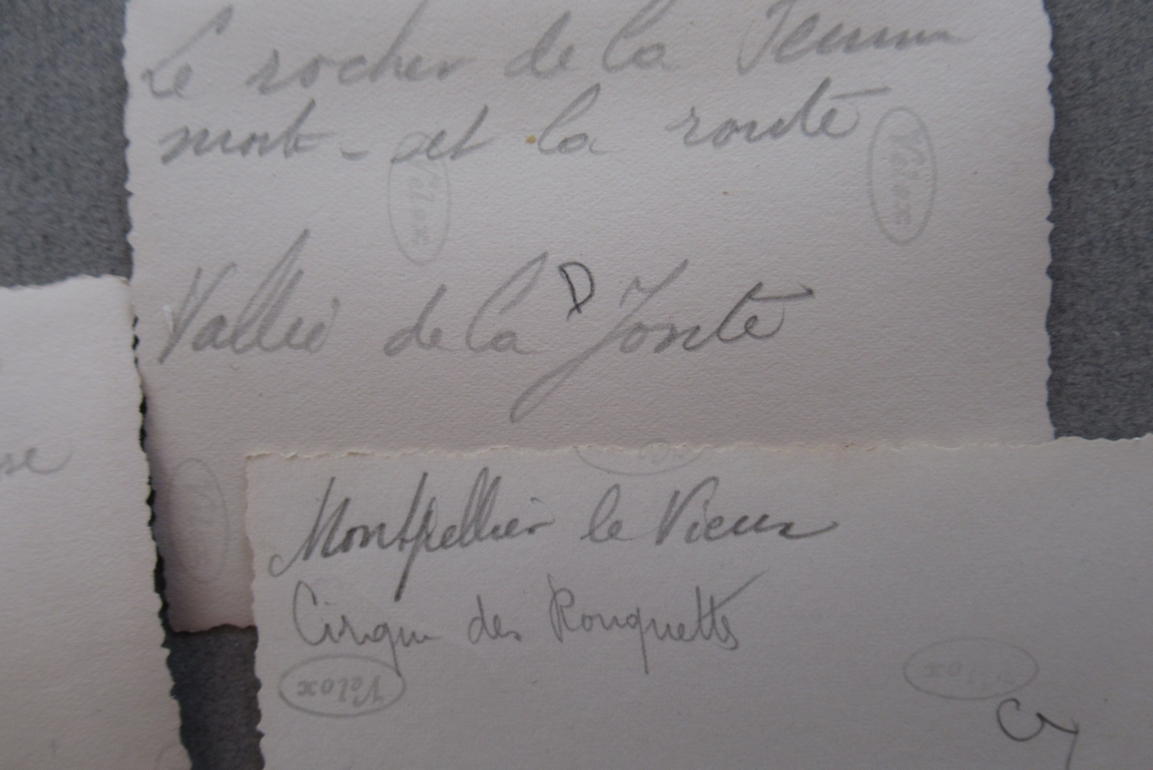 Le rocher de la Femme
morte - et la route
Velox
Velox
Vallée de la Jonte
D
Montpellier le Vieux
Cirque des Rouquettes
Velox
Velox